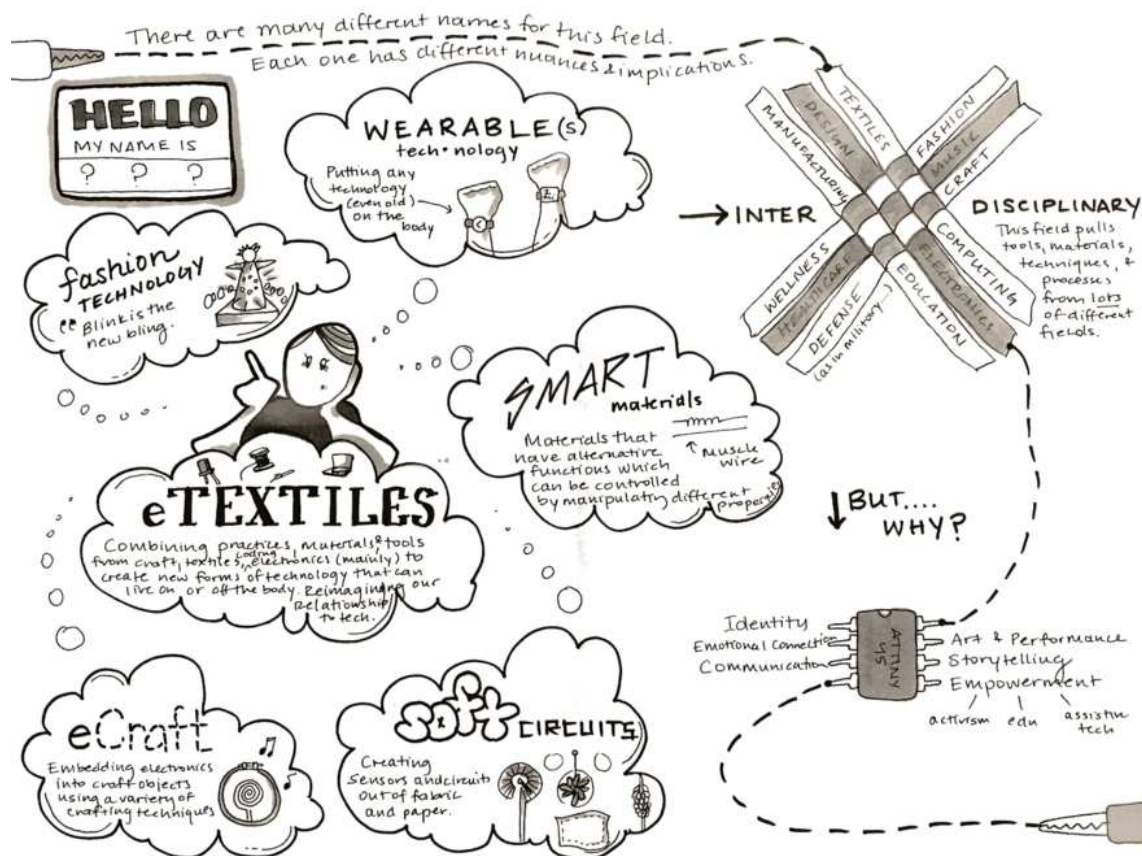 There are many different names for this field.
Each one has different nuances & implications.
HELLO
MY NAME IS
? ? ?
WEARABLE(s)
tech•nology
Putting any
technology
(even old)
on the
body
fashion
TECHNOLOGY
Blink is the
new bling.
SMART
materials
Materials that
have alternative
functions which
can be controlled
by manipulating different
properties
Muscle
wire
eTEXTILES
Combining practices, materials, & tools
from craft, textiles, coding, electronics (mainly) to
create new forms of technology that can
live on or off the body. Reimagining our
Relationship
to tech.
eCraft
Embedding electronics
into craft objects
using a variety of
crafting techniques
soft CIRCUITS
Creating
sensors and circuits
out of fabric
and paper.
→ INTER DISCIPLINARY
MANUFACTURING
DESIGN
TEXTILES
FASHION
MUSIC
CRAFT
WELLNESS
HEALTHCARE
DEFENSE
(as in military...)
EDUCATION
ELECTRONICS
COMPUTING
This field pulls
tools, materials,
techniques, &
processes
from lots
of different
fields.
↓ BUT....
WHY?
Identity
Emotional Connection
Communication
ATTINY
45
Art & Performance
Storytelling
Empowerment
activism edu assistive
tech